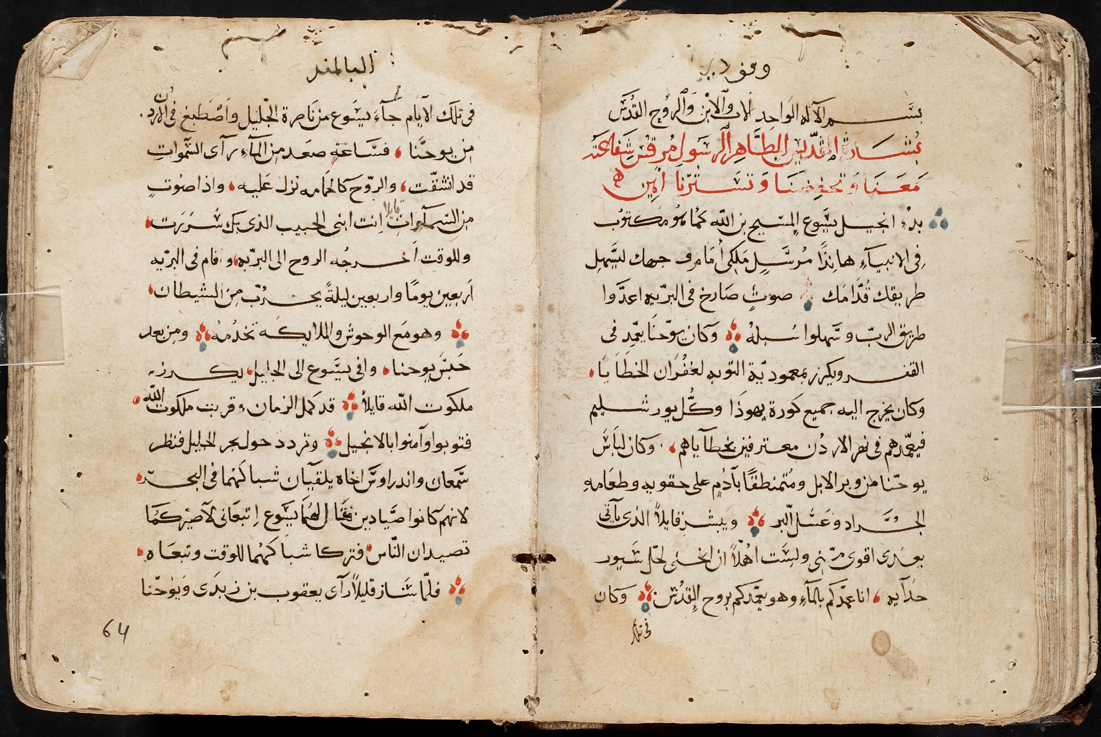 وقف دير
بســـم الآله الواحد الاب والابن والروح القدس
بشارة القديس الطاهر الرسول مرقس شفاعته
معنا وتحفضنا وتسترنا امين
بدء انجيل يسوع المسيح بن الله كما هو مكتوب
في الانبياء هانذا مرسل ملكي أمام وجهك ليسهل
طريقك قدامك صوت صارخ في البريه اعدوا
طريق الرب وسهلوا سبله وكان يوحنا يعمد في
القفر ويكرز بمعمودية التوبه لغفران الخطايا
وكان يخرج اليه جميع كورة يهوذا وكل يورشليم
فيعمدهم في نهر الاردن معترفين بخطاياهم وكان لباس
يوحنا من وبر الابل ومتمنطقا بآدم على حقويه وطعامه
الجراد وعسل البر ويبشر قايلا الذي ياتي
بعدي اقوى مني ولست اهلا ان انحني لحل سيور
حذآيه انا اعمدكم بالمآء وهو يعمدكم بروح القدس وكان
في تلك
البالمند
في تلك الايام جآء يسوع من ناصرة الجليل واصطبغ في الاردن
من يوحنا فساعة صعد من المآء رآى السموات
قد انشقت والروح كالحمامه نزل عليه واذا صوت
من السموات قايلا انت ابني الحبيب الذي بك سررت
وللوقت أخرجه الروح الى البريه وقام في البريه
اربعين يوما واربعين ليلة يجرب من الشيطان
وهو مع الوحوش والملايكه تخدمه ومن بعد
حبس يوحنا وافى يسوع الى الجليل يكرز
ملكوت الله قايلا قد كمل الزمان وقربت ملكوت الله
فتوبوا وآمنوا بالانجيل وتردد حول بحر الجليل فنظر
سمعان واندراوس اخاه يلقيان شباكهما في البحر
لانهم كانوا صيادين فقال لهما يسوع اتبعاني لأصيركما
تصيدان الناس فتركا شباكهما للوقت وتبعاه
فلما سار قليلا رآى يعقوب بن زبدى ويوحنا
64